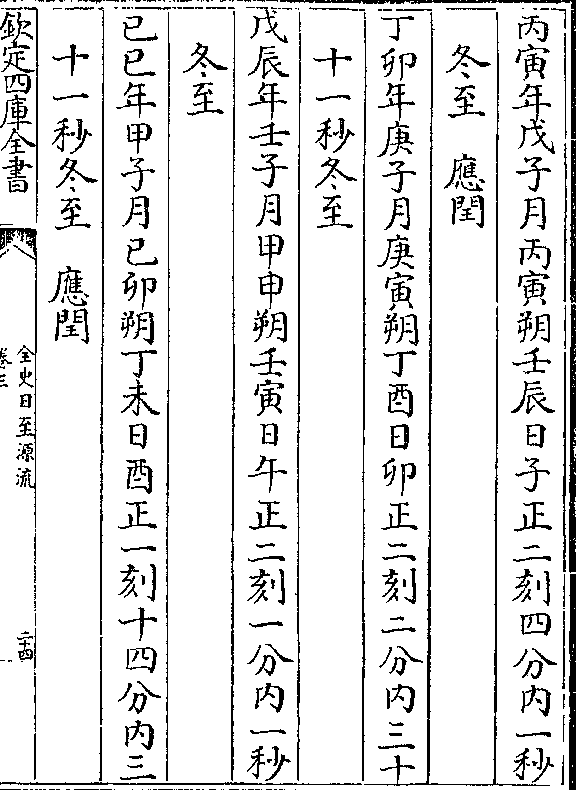 丙寅年戊子月丙寅朔壬辰日子正二刻四分内一秒
冬至　應閏
丁卯年庚子月庚寅朔丁酉日卯正二刻二分内三十
十一秒冬至
戊辰年壬子月甲申朔壬寅日午正二刻一分内一秒
冬至
己巳年甲子月己卯朔丁未日酉正一刻十四分内三
十一秒冬至　應閏
欽定四庫全書
全史日至源流
卷三
二十四